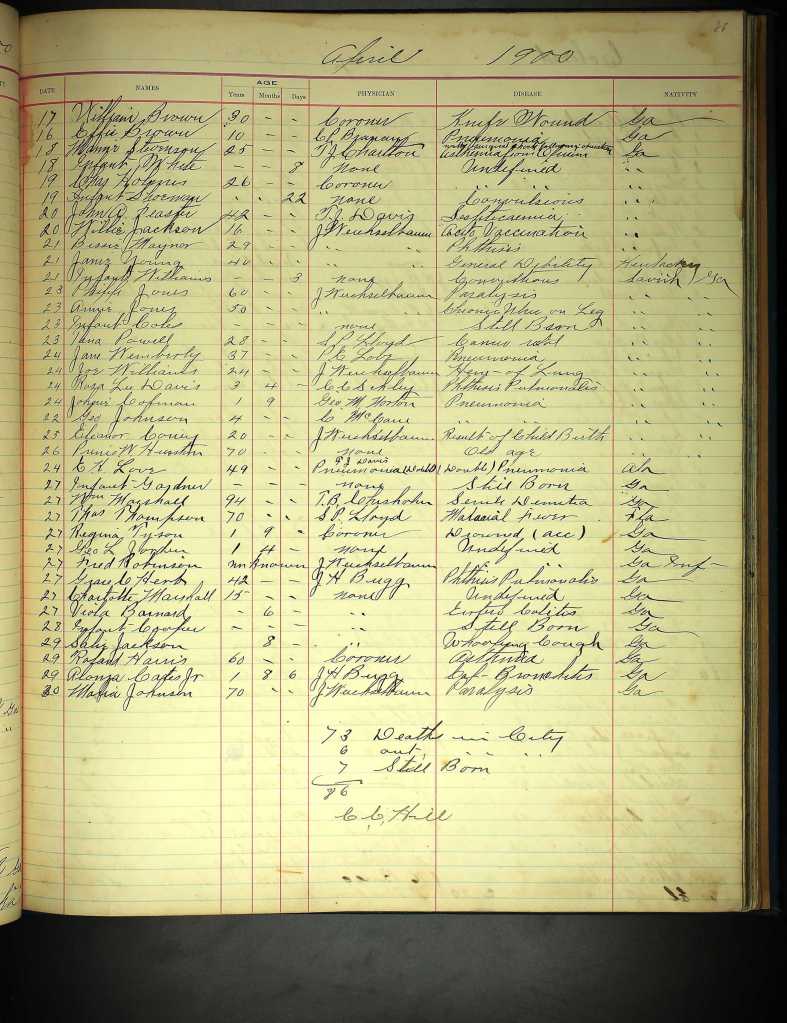 April 1900
DATE NAMES AGE Years Months Days PHYSICIAN DISEASE NATIVITY
17 William Brown 30 - - Coroner Knife Wound Ga
16 Effie Brown 10 - - Pneumonia Ga
18 Stevenson 25 - - T J Charlton Opium Ga
18 Infant White 8 none Undefined ,,
19 Chas 26 - - Coroner
19 Infant Sherman 22 none Convulsions ,,
20 John A. Feaster 42 - - T J Davis Septicaemia ,,
20 Willie Jackson 16 - - J Weichselbaum Vaccination ,,
21 Bessie Maynor 29 - - ,, ,, Phthisis ,,
21 Jane Young 40 - - ,, ,, General Debility Kentucky
21 Infant Williams - - 3 none Convulsions Savnh / Ga
23 Jones 60 - - J Weichselbaum Paralysis ,, ,,
23 Annie Jones 50 - - ,, ,, Chronic Ulcer on Leg ,, ,,
23 Infant Cole - - - none Still Born ,, ,,
23 Powell 28 - - S. P. Lloyd Cancer ,, ,,
24 Jane Wemberly 37 - - Pneumonia ,, ,,
24 Joe Williams 24 - - J Weichselbaum Hem- of Lung ,, ,,
24 Rosa Lee Davis 3 4 - Phthisis Pulmonalis ,, ,,
24 Johnie Cofman 1 9 Geo. M Norton Pneumonia ,, ,,
22 Geo Johnson 4 - - C McCane ,, ,, ,, ,,
25 Eleanor Coney 20 - - J Weichselbaum Result of Child Birth ,, ,,
26 Houston 70 - - none Old age ,, ,,
24 E K Love 49 - - T J Davis Pneumonia (Double) (Double) Pneumonia Ala
27 Infant Gardner - - - none Still Born Ga
27 Wm Marshall 94 - - T. B. Chisholm Senile Dementia Ga
27 Thos Thompson 70 - - S P. Lloyd Malarial Fever Fla
27 Regina Tyson 1 9 - Coroner Drowned (acc) Ga
27 Geo L 1 4 - none Undefined Ga
27 Fred Robinson unknown J Weichselbaum ,, ,, Ga
27 Grace C Herb 42 - - J H Bugg Phthisis Pulmonalis Ga
27 Charlotte Marshall 15 - - none Undefined Ga
27 Viola Barnard - 6 - ,, Entero Colitis Ga
28 Infant Cooper - - - ,, Still Born Ga
29 Jackson 8 - ,, Whooping Cough Ga
29 Harris 60 - - Coroner Asthenia Ga
29 Alonza Cates Jr 1 8 6 J H Bugg Cap- Bronchitis Ga
30 Maria Johnson 70 - - J Weichselbaum Paralysis Ga
73 Deaths in City
6 out ,, ,,
7 Still Born
86
C. C. Hill